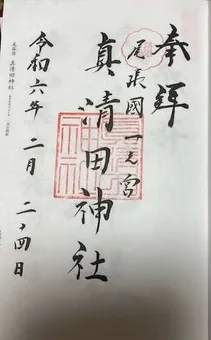 奉拝
尾張國一之宮
真清田神社
令和六年 二月 二十四日
真清田神社